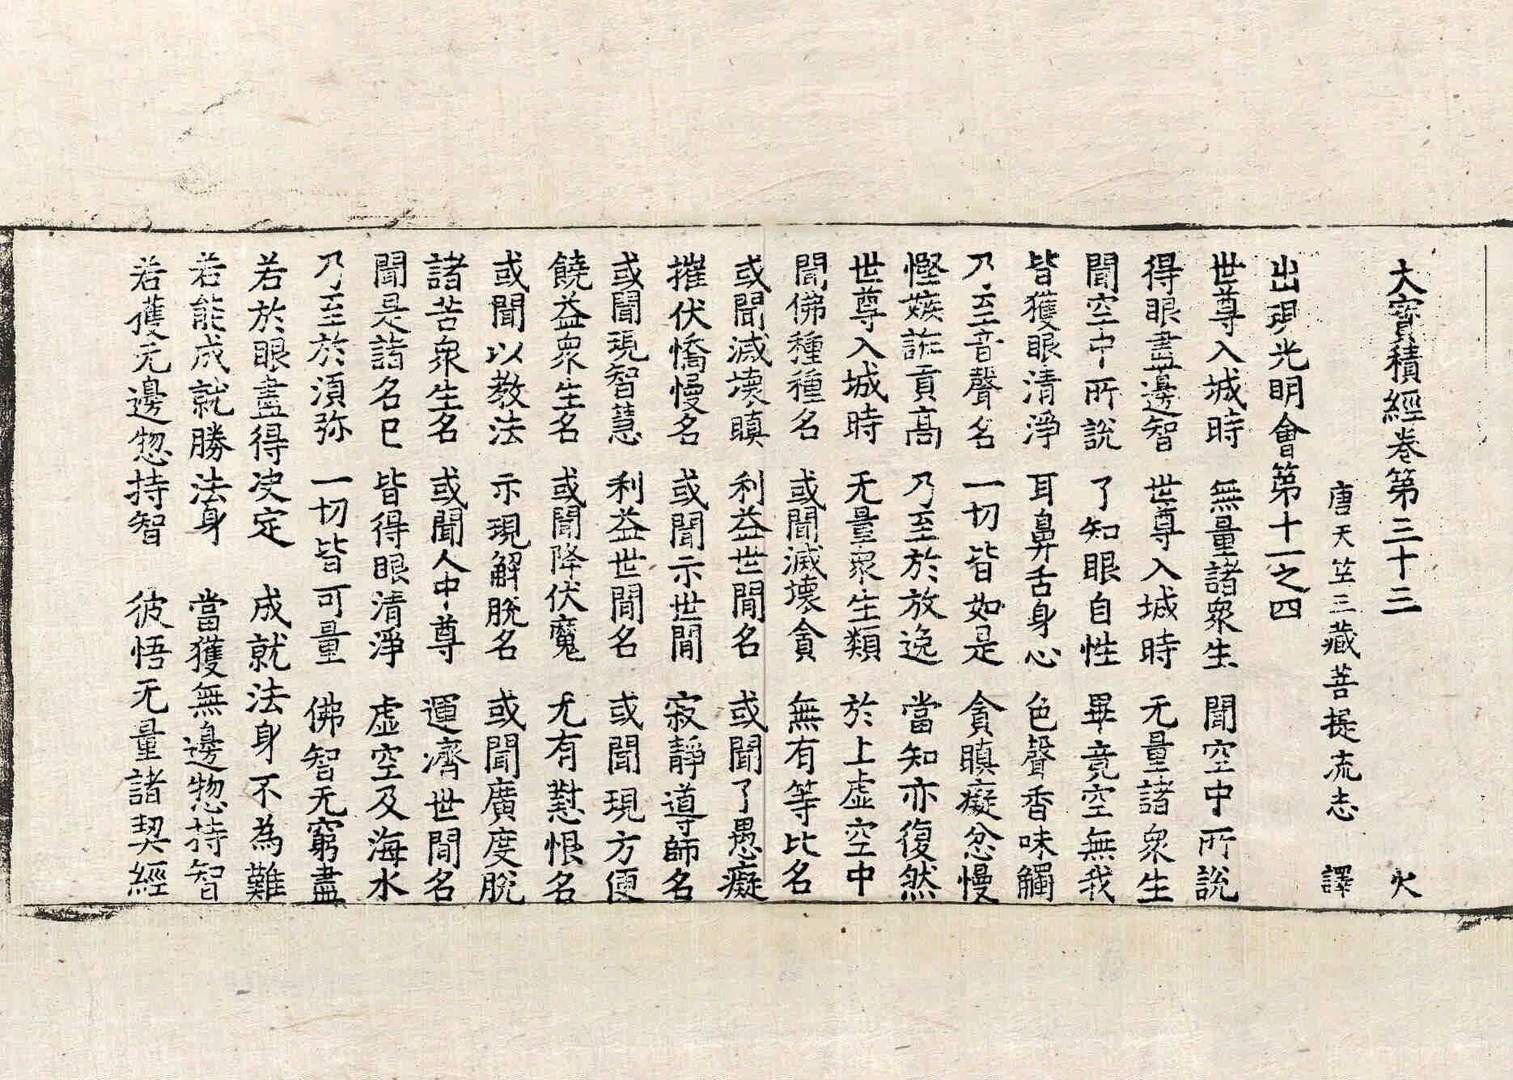 大寶積經卷第三十三 火
唐天竺三藏菩提流志 譯
出現光明會第十一之四
世尊入城時 無量諸衆生 聞空中所說
得眼盡邊智 世尊入城時 无量諸衆生
聞空中所說 了知眼自性 畢竟空無我
皆獲眼清淨 耳鼻舌身心 色聲香味觸
乃至音聲名 一切皆如是 貪瞋癡忿慢
慳嫉誑貢高 乃至於放逸 當知亦復然
世尊入城時 无量衆生類 於上虛空中
聞佛種種名 或聞滅壞貪 無有等比名
或聞滅壞瞋 利益世間名 或聞了愚癡
摧伏憍慢名 或聞示世間 寂靜導師名
或聞現智慧 利益世間名 或聞現方便
饒益衆生名 或聞降伏魔 尤有懟恨名
或聞以教法 示現解脫名 或聞廣度脫
諸苦衆生名 或聞人中尊 運濟世間名
聞是諸名已 皆得眼清淨 虛空及海水
乃至於須弥 一切皆可量 佛智无窮盡
若於眼盡得決定 成就法身不為難
若能成就勝法身 當獲無邊惣持智
若獲无邊惣持智 彼悟无量諸契經